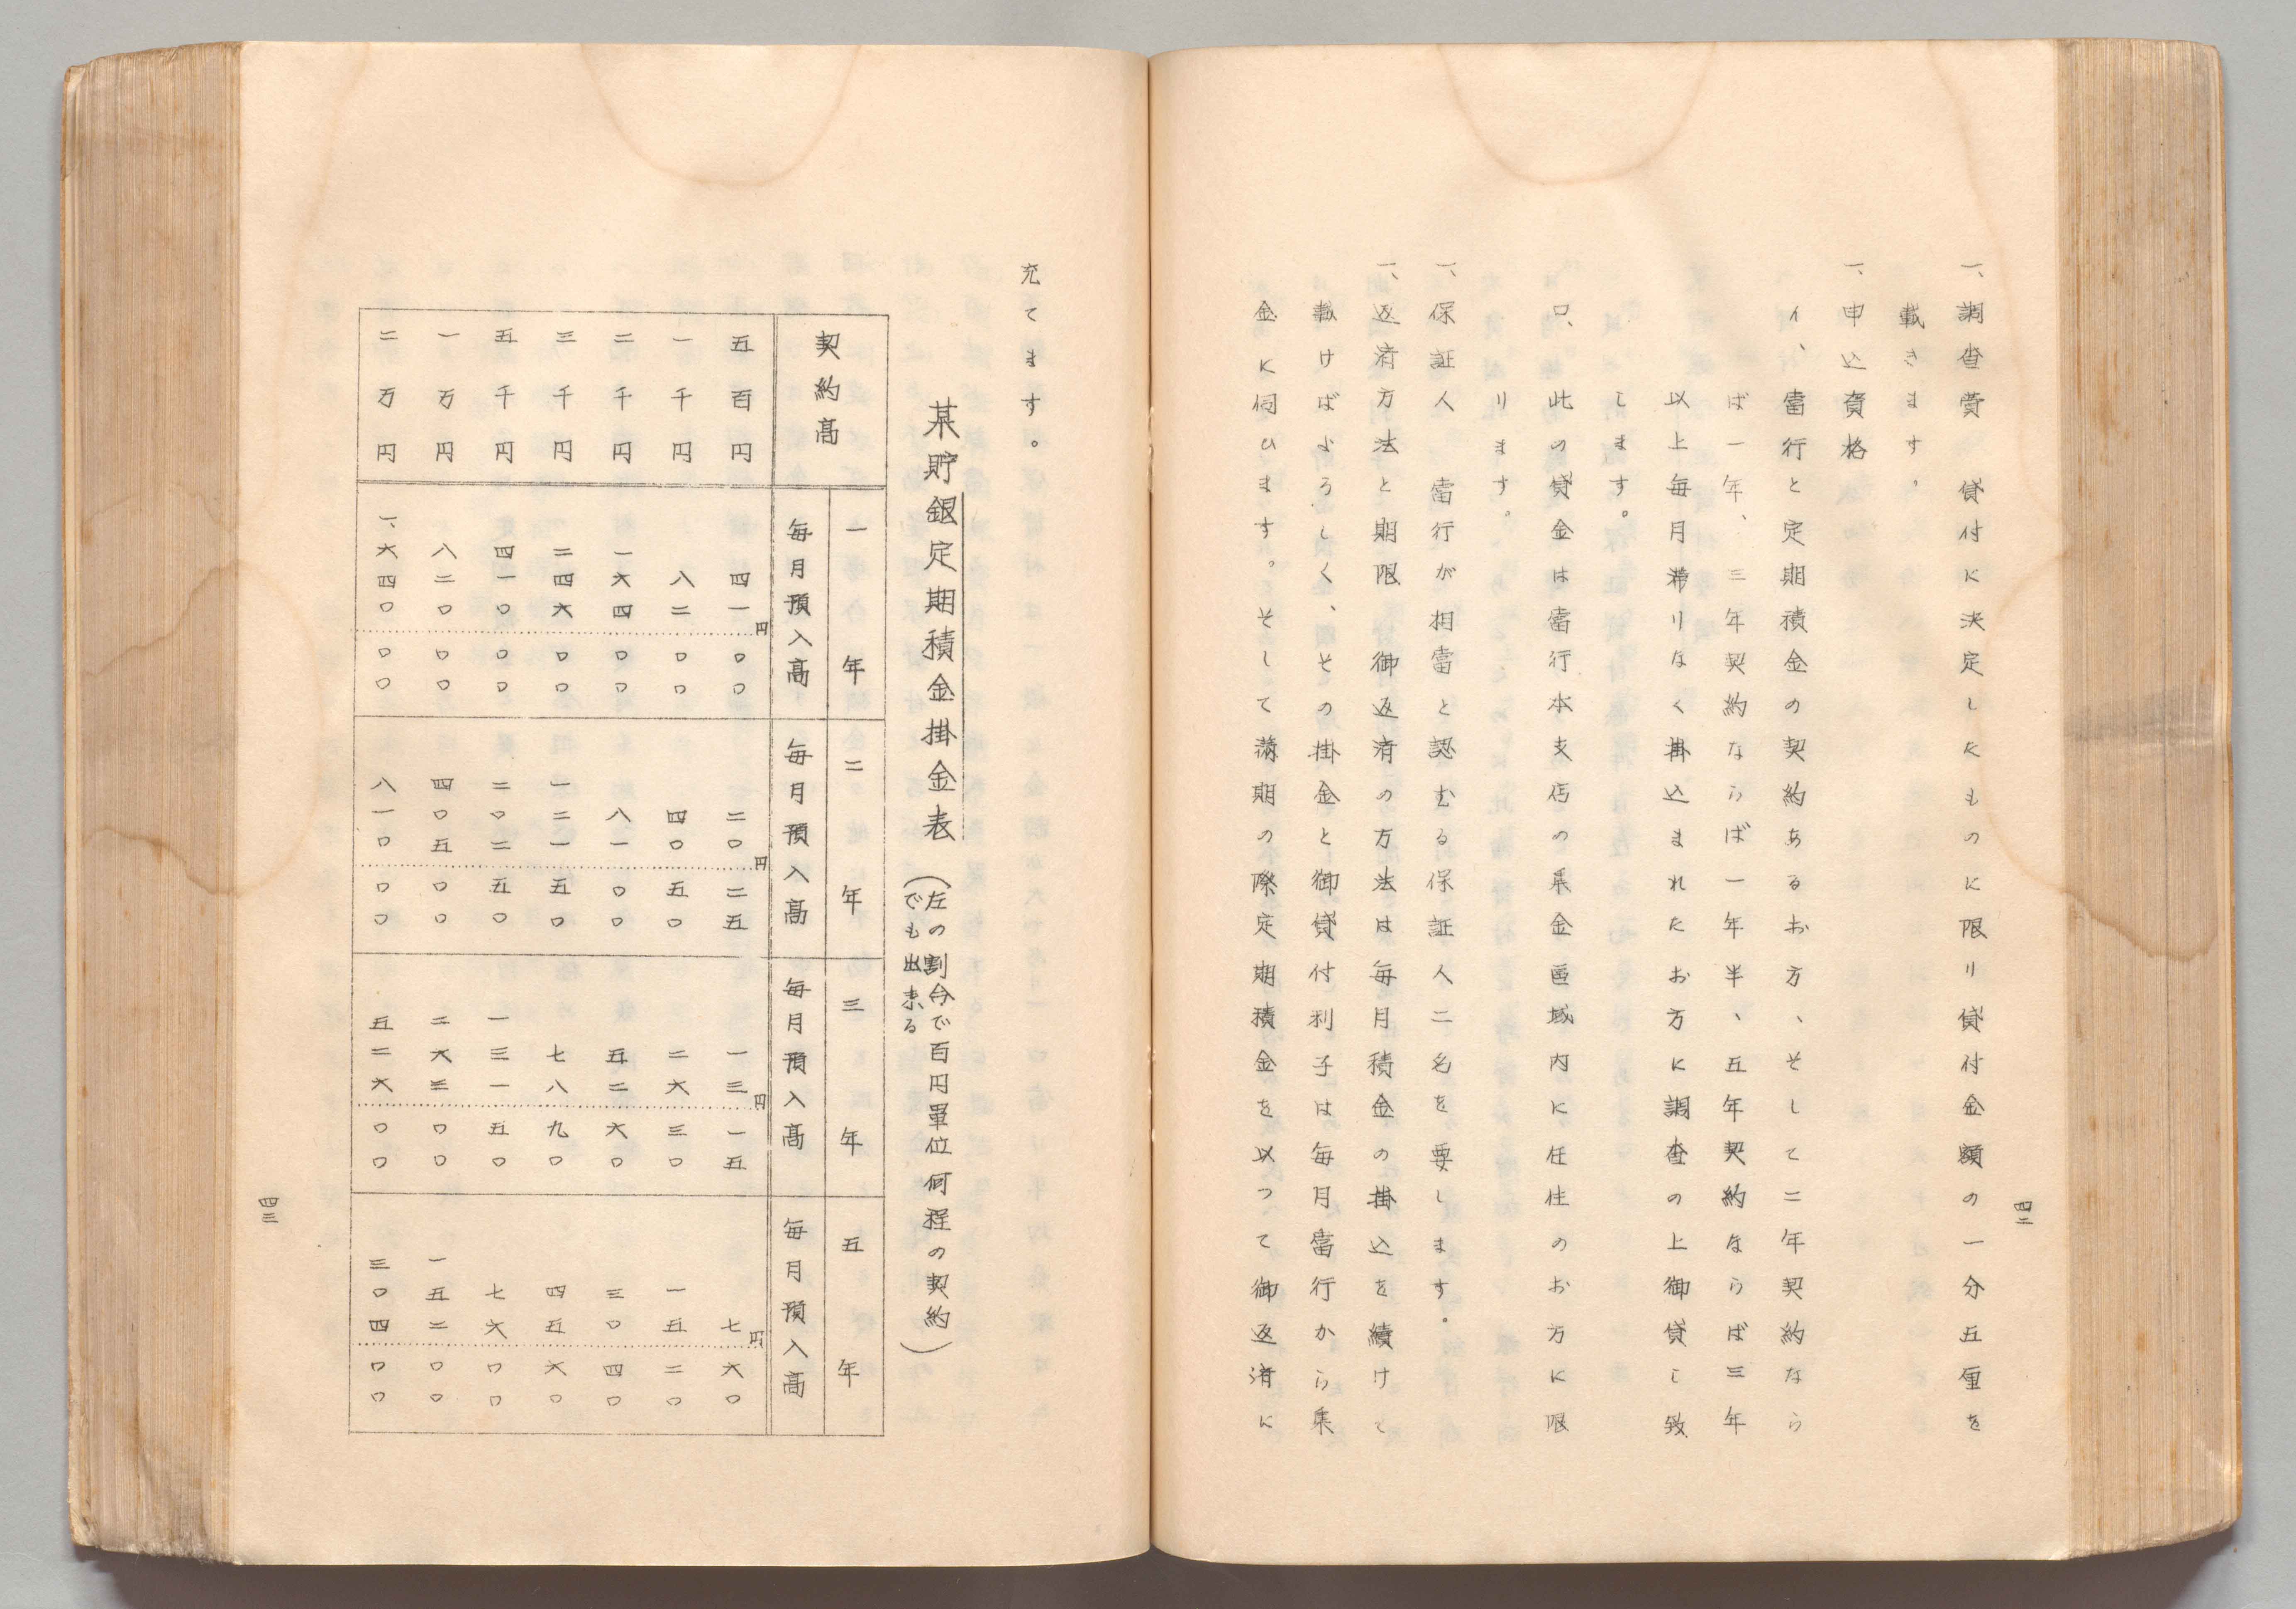 四二
一、調査費　貸付に決定したものに限り貸付金額の一分五厘を
載きます。
一、申込資格
イ、當行と定期積金の契約あるお方、そして二年契約なら
ば一年、三年契約ならば一年半、五年契約ならば三年
以上毎月滞りなく掛込まれたお方に調査の上御貸し致
します。
ロ、此の貸金は當行本支店の集金區域内に在住のお方に限
ります。
一、保証人　當行が相當と認むる保証人二名を要します。
一、返済方法と期限　御返済の方法は毎月積金の掛込を續けて
載けばよろしく、その掛金と御貸付利子は毎月當行から集
金に伺ひます。そして満期の際定期積金を以つて御返済に
充てます。
某貯銀定期積金掛金表
（左の割合で百円單位何程の契約
でも出来る）
契約高　一年　毎月預入高　二年　毎月預入高　三年　毎月預入高　五年　毎月預入高
五百円　四一円〇〇　二〇円二五　一三円一五　七円六〇
一千円　八二〇〇　四〇五〇　二六三〇　一五二〇
二千円　一六四〇〇　八一〇〇　五二六〇　三〇四〇
三千円　二四六〇〇　一二一五〇　七八九〇　四五六〇
五千円　四一〇〇〇　二〇二五〇　一三一五〇　七六〇〇
一万円　八二〇〇〇　四〇五〇〇　二六三〇〇　一五二〇〇
二万円　一、六四〇〇〇　八一〇〇〇　五二六〇〇　三〇四〇〇
四三